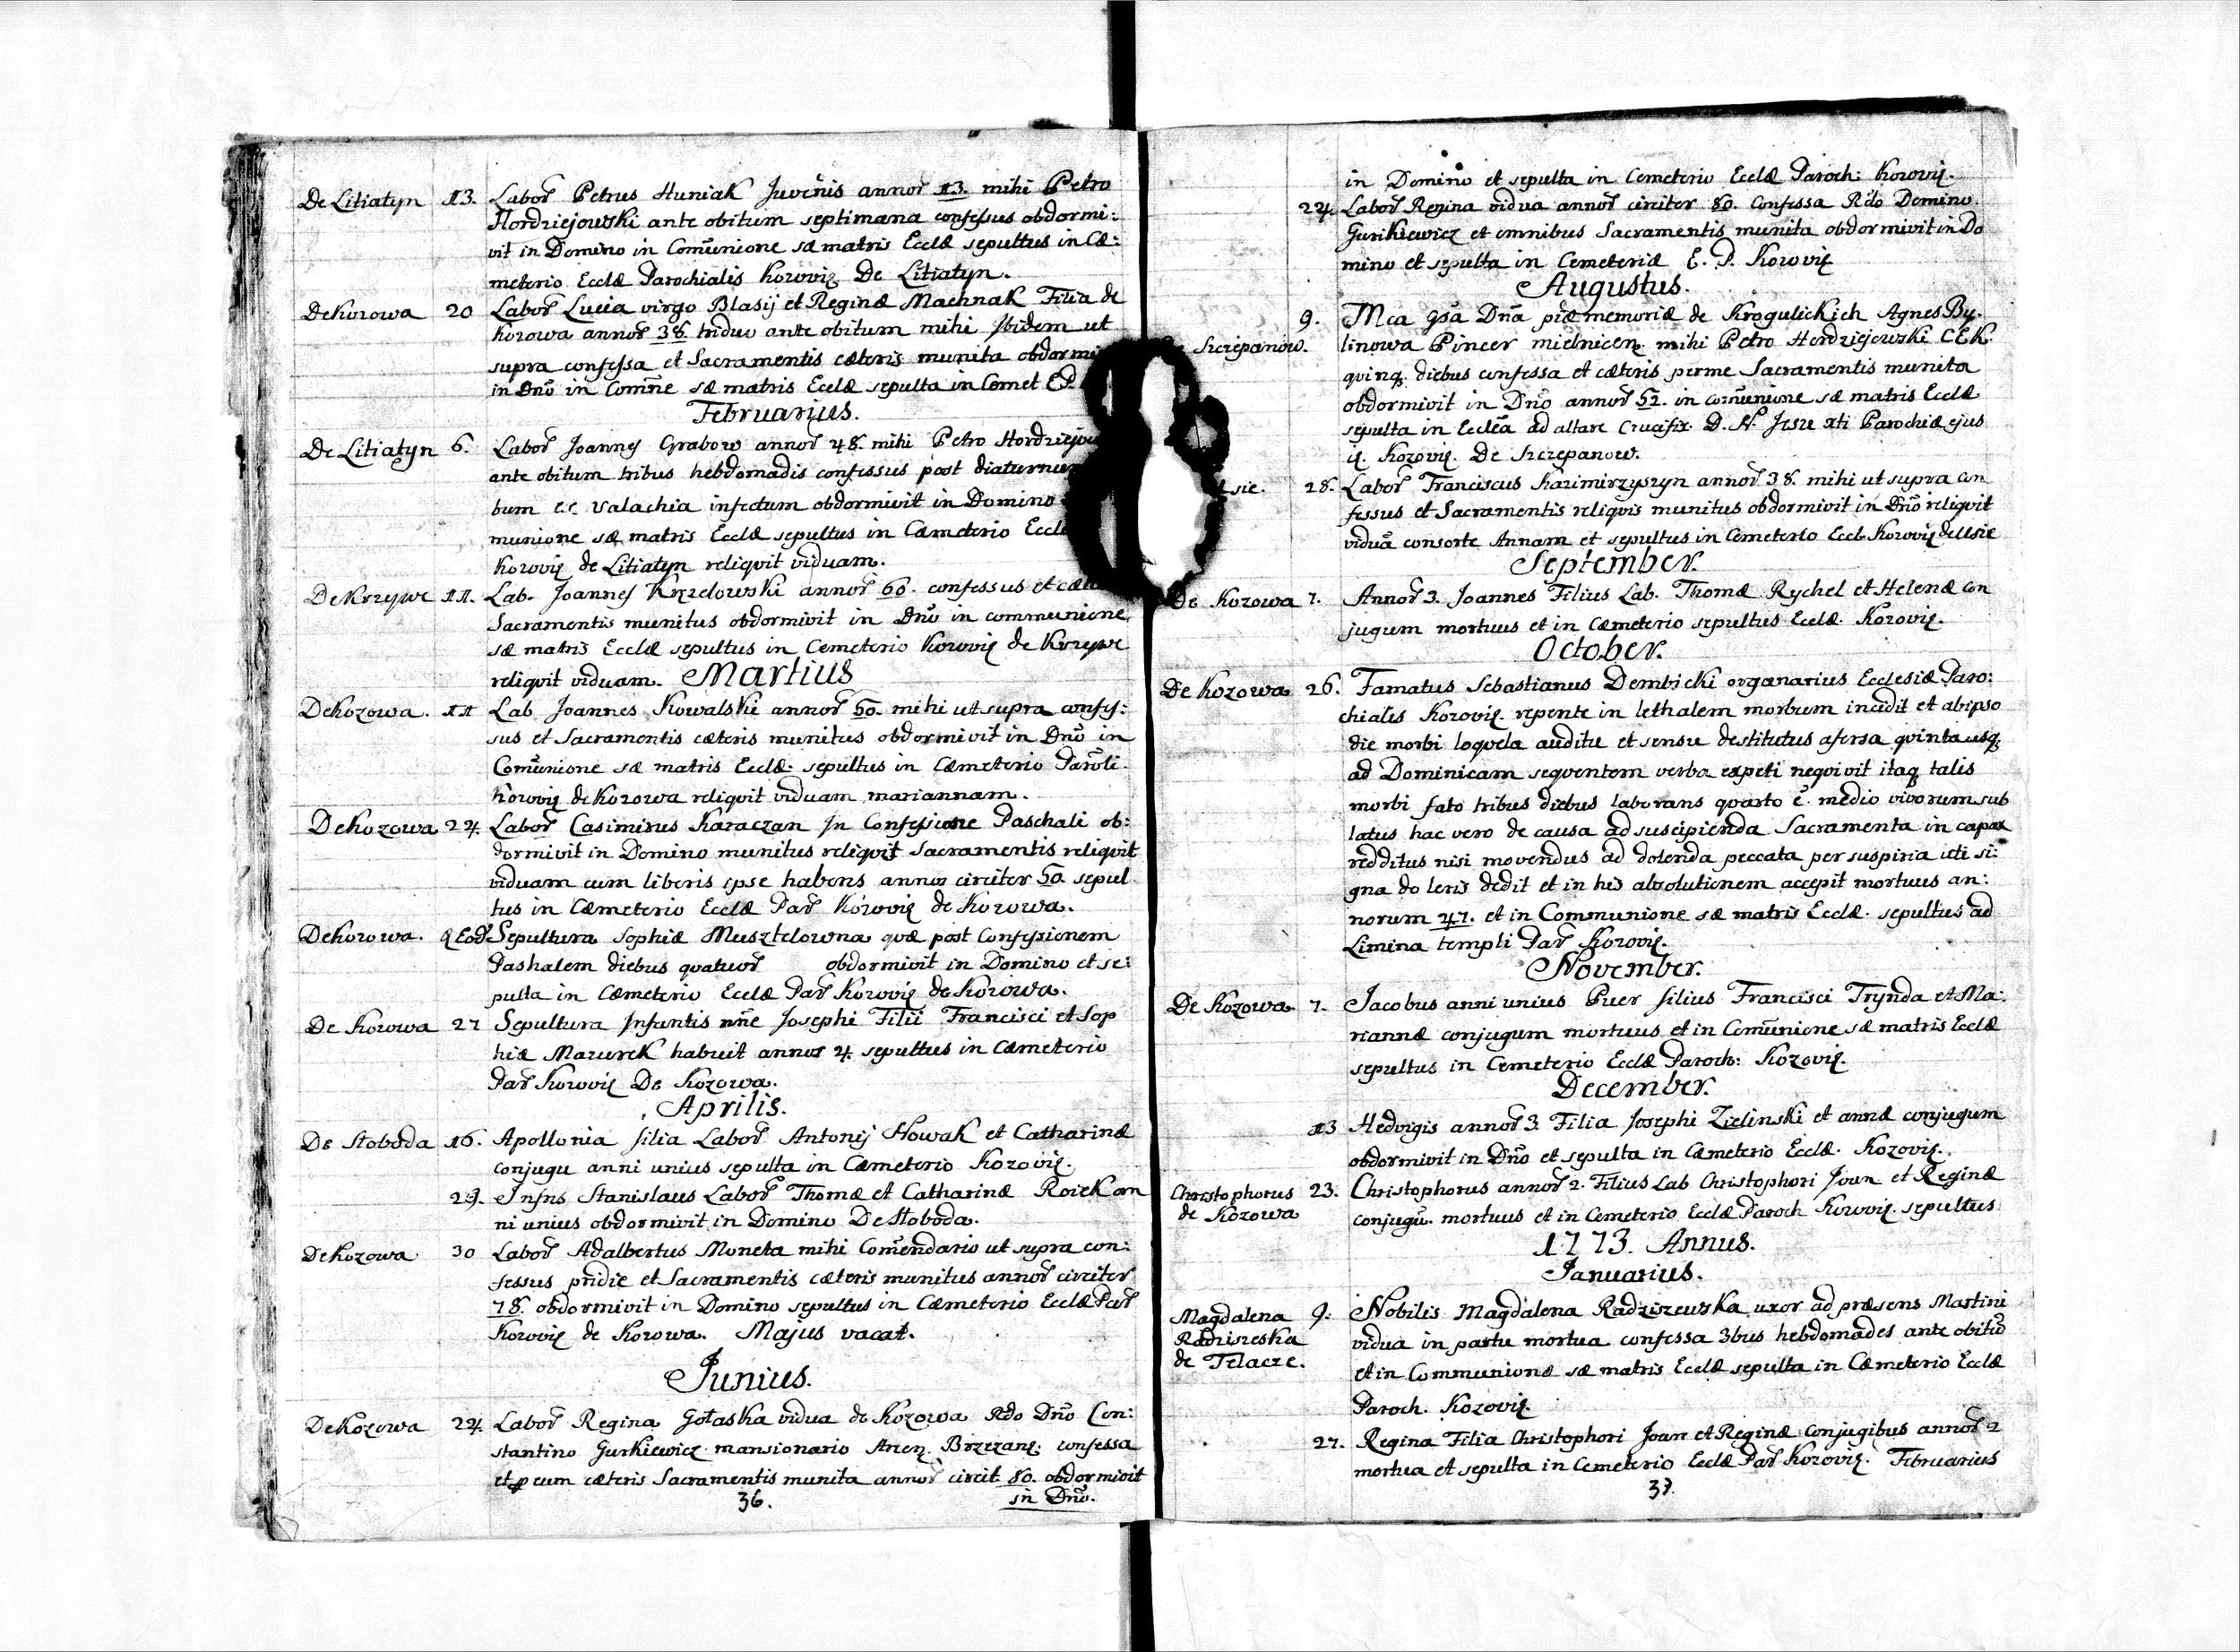 De Litiatyn 13. Labor̃ Petrus Huniak Juvenis annor̃ 13. mihi Petro
Hordziejowski ante obitum septimana confessus obdormi:
vit in Domino in Comũnione sæ matris Eccłæ sepultus in Cæ:
meterio Eccłæ Parochialis Kozovię De Litiatyn.
De Kozowa 20 Labor̃ Lucia virgo Blasij et Reginæ Machnak Filia de
Kozowa annor̃ 38. triduo ante obitum mihi ibidem ut
supra confessa et Sacramentis cæteris munita obdormi
in Dño in Comñe sæ matris Eccłæ sepulta in Comet E.P.
Februarius.
De Litiatyn 6. Labor̃ Joannes Grabow annor̃ 48. mihi Petro Hordziejow
ante obitum tribus hebdomadis confessus post diaturnum
bum ex Valachia infectum obdormivit in Domino
munione sæ matris Eccłæ sepultus in Cæmeterio Eccłæ
Kozovię de Litiatyn reliqvit viduam.
De Krzywe 11. Lab. Joannes Krzelowski annor̃ 60. confessus et cæte
Sacramentis munitus obdormivit in Dño in communione
sæ matris Eccłæ sepultus in Cemeterio Kozovię de Krzywe
reliqvit viduam. Martius
De Kozowa. 11 Lab Joannes Kowalski annor̃ 50. mihi ut supra confes:
sus et Sacramentis cæteris munitus obdormivit in Dño in
Comũnione sæ matris Eccłæ. sepultus in Cæmeterio Parõli.
Kozovię de Kozowa reliqvit viduam mariannam.
De Kozowa 24. Labor̃ Casimirus Karaczan In Confessione Paschali ob:
dormivit in Domino munitus reliqvis Sacramentis reliqvit
viduam cum liberis ipse habens annos circiter 50. sepul
tus in Cæmeterio Eccłæ Par̃ Kozovię de Kozowa.
De Kozowa. Eod̃ Sepultura Sophiæ Musztelowna quæ post Confessionem
Pashalem diebus quatuor̃ obdormivit in Domino et se:
pulta in Cæmeterio Eccłæ Par̃ Kozovię de Kozowa.
De Kozowa 27 Sepultura Infantis nñe Josephi Filii Francisci et Sop
hiæ Mazurek habuit annos 4. sepultus in Cæmeterio
Par̃ Kozovię De Kozowa.
Aprilis.
De Słoboda 16. Apollonia filia Labor̃ Antonij Nowak et Catharinæ
conjugu anni unius sepulta in Cæmeterio Kozovię.
29. Infns Stanislaus Labor̃ Thomæ et Catharinæ Roiek an
ni unius obdormivit in Domino De Słoboda.
De Kozowa 30 Labor̃ Adalbertus Moneta mihi Comẽndario ut supra con:
fessus pridie et Sacramentis cæteris munitus annor̃ circiter
78. obdormivit in Domino sepultus in Cæmeterio Eccłæ Par̃
Kozovię de Kozowa. Majus vacat.
Junius.
De Kozowa 24. Labor̃ Regina Gołaska vidua de Kozowa Rdo Dño Con:
stantino Gurkiewicz mansionario Brzezanę. confessa
et cum cæteris Sacramentis munita annor̃ circit 80. obdormivit
in Dño.
36.
in Domino et sepulta in Cemeterio Eccłæ Paroch: Kozovię.
24. Labor̃ Regina vidua annor̃ circiter 80. Confessa Rdo Domino
Gurikiewicz et omnibus Sacramentis munita obdormivit in Do
mino et sepulta in Cemeteriæ E. P. Kozovię
Augustus.
9. Mca gsã Dña piæ memoriæ de Krogulickich Agnes By:
Szczepanow. linowa Pincer mielnicen. mihi Petro Hordziejewski C.E.K.
qvinq. diebus confessa et cæteris ferme Sacramentis munita
obdormivit in Dño annor̃ 52. in comũnione sæ matris Eccłæ
sepulta in Ecclẽa ad altare Crucifix. D. N. Jesu xti Parochiæ ejus
Kozovię. De Szczepanow.
sie. 28. Labor̃ Franciscus Kazimirzyszyn annor̃ 38. mihi ut supra con
fessus et Sacramentis reliqvis munitus obdormivit in Dño reliqvit
viduã consorte Annam et sepultus in Cemeterio Eccł. Kozovię de Usie
September.
De Kozowa 7. Annor̃ 3. Joannes Filius Lab. Thomæ Rychel et Helenæ con
jugum mortuus et in Cæmeterio sepultus Eccłæ. Kozovię.
October.
De Kozowa 26. Famatus Sebastianus Dembicki organarius Ecclesiæ Paro:
chialis Kozovię. repente in lethalem morbum incidit et ab ipso
die morbi loquela auditu et sensu destitutus afersa qvinta usq
ad Dominicam seqventem verba expeti neqvivit itaq talis
morbi fato tribus diebus laborans qvarto ẽ medio vivorum sub
latus hac vero de causa ad suscipienda Sacramenta in capax
redditus nisi movendus ad dolenda peccata per suspiria uti si:
gna doloris dedit et in his absolutionem accepit mortuus an:
norum 47. et in Communione sæ matris Eccłæ. sepultus ad
Limina templi Par̃ Kozovię.
November.
De Kozowa. 7. Jacobus anni unius Puer filius Francisci Trynda et Ma:
riannæ conjugum mortuus et in Comũnione sæ matris Eccłæ
sepultus in Cemeterio Eccłæ Paroch: Kozovię.
December.
13 Hedvigis annor̃ 3. Filia Josephi Zielinski et annæ conjugum
obdormivit in Dño et sepulta in Cæmeterio Eccłæ. Kozovię.
Christophorus 23. Christophorus annor̃ 2. Filius Lab Christophori Joun et Reginæ
de Kozowa conjugũ. mortuus et in Cemeterio Eccłæ Paroch Kozovię. sepultus
1773. Annus.
Januarius.
Magdalena 9. Nobilis Magdalena Radziszewska uxor ad præsens Martini
Radziszeska vidua in partu mortua confessa 3bus hebdomades ante obitũ
de Telacze. et in Communionæ sæ matris Eccłæ sepulta in Cæmeterio Eccłæ
Paroch. Kozovię.
27. Regina Filia Christophori Joun et Reginæ Conjugibus annor̃ 2
mortua et sepulta in Cemeterio Eccłæ Par̃ Kozovię. Februarius
37.